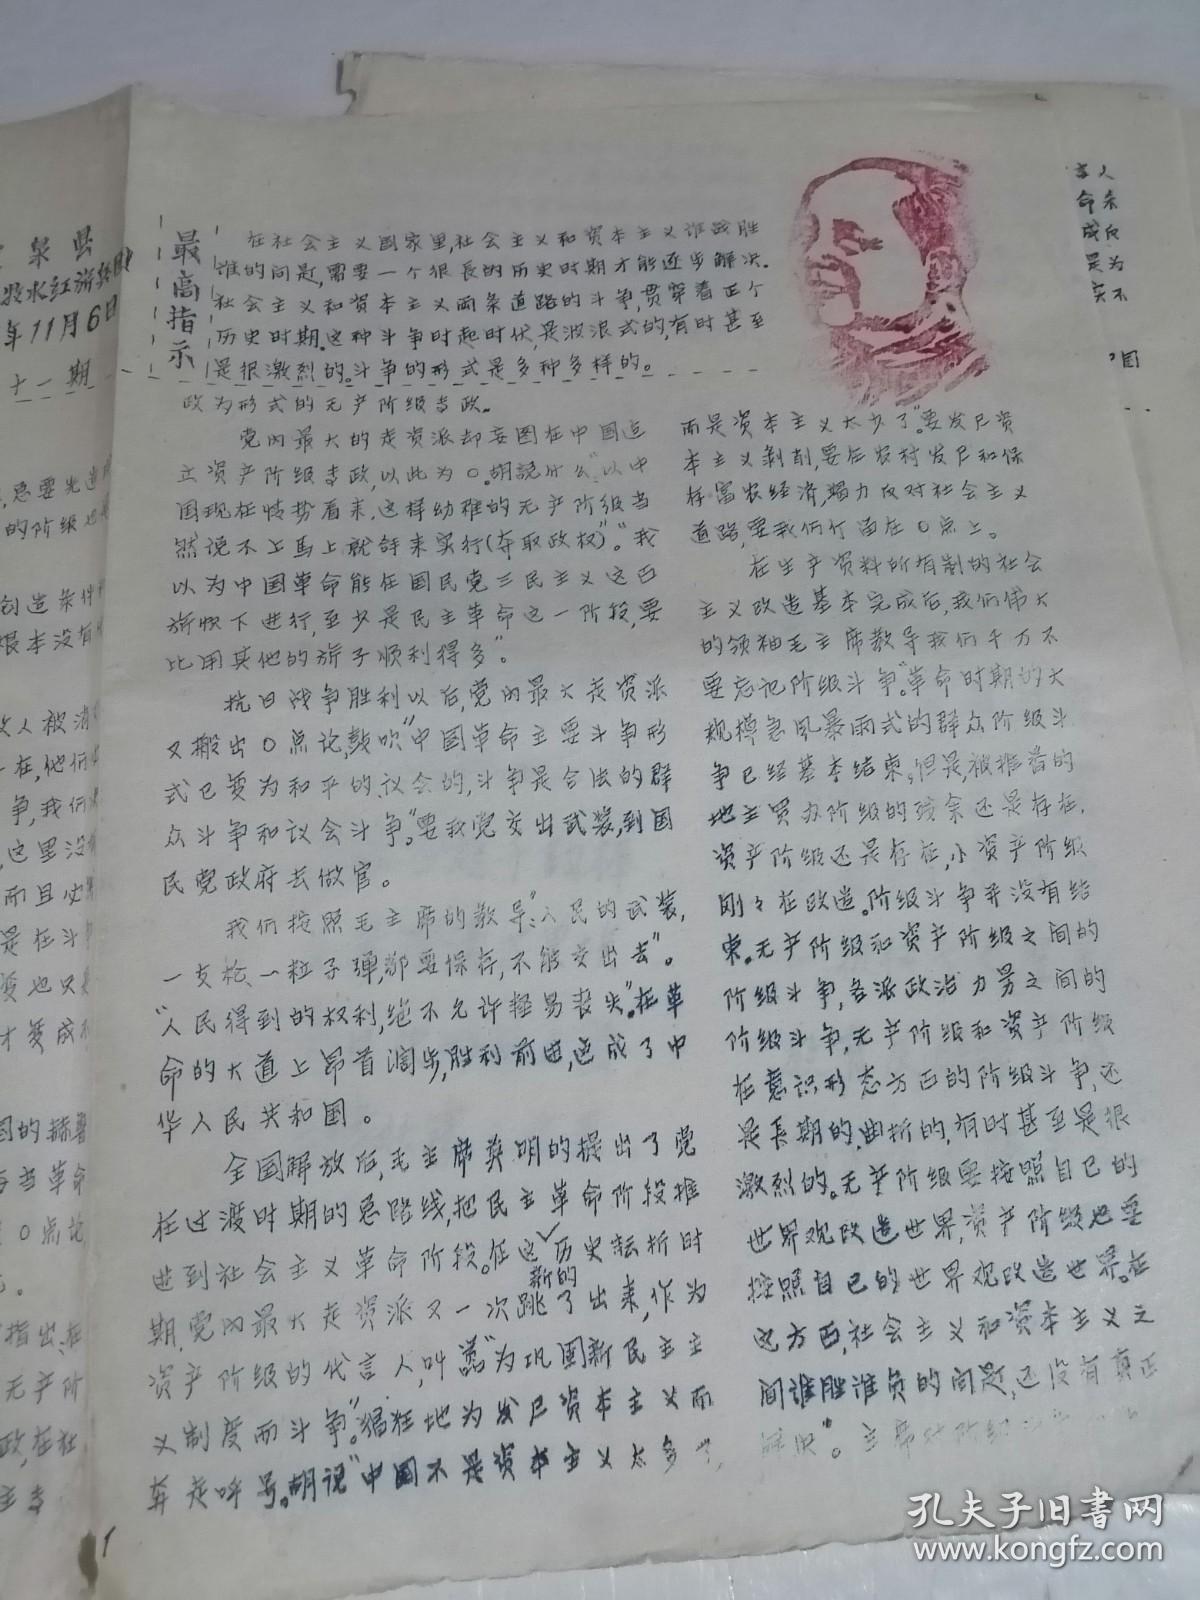 泉县
水红旗兵团
年11月6日
十一期
最高指示
在社会主义国家里,社会主义和资本主义谁战胜
谁的问题,需要一个很長的历史时期才能逐步解决.
社会主义和资本主义两条道路的斗争,贯穿着正个
历史时期.这种斗争时起时伏,是波浪式的,有时甚至
是很激烈的。斗争的形式是多种多样的。
政为形式的无产阶级专政。
党内最大的走资派却妄图在中国造
立资产阶级专政,以此为0.胡說什么“以中
国现在情势看来,这样幼稚的无产阶级当
然说不上馬上就能夺来实行(夺取政权)”。“我
以为中国革命能在国民党三民主义这面
旂帜下进行,至少是民主革命这一阶段,要
比用其他的旂子顺利得多”。
抗日战争胜利以后,党内最大走资派
又搬出0点论,鼓吹“中国革命主要斗争形
式已变为和平的、议会的,斗争是合法的群
众斗争和议会斗争。”要我党交出武装,到国
民党政府去做官。
我们按照毛主席的教导:“人民的武装,
一支枪、一粒子弹,都要保存,不能交出去”。
“人民得到的权利,绝不允许轻易丧失”。在革
命的大道上昂首阔步,胜利前进,造成了中
华人民共和国。
全国解放后,毛主席英明的提出了党
在过渡时期的总路线,把民主革命阶段推
进到社会主义革命阶段。在这新的历史転折时
期,党内最大走资派又一次跳了出来,作为
资产阶级的代言人,叫嚣“为巩固新民主主
义制度而斗争”。猖狂地为发尸资本主义而
奔走呼号。胡说“中国不是资本主义太多了,
而是资本主义太少了”。要发尸资
本主义剥削,要在农村发尸和保
存富农经济,竭力反对社会主义
道路,要我们停留在0点上。
在生产资料所有制的社会
主义改造基本完成后,我们伟大
的领袖毛主席教导我们千万不
要忘记阶级斗争。“革命时期的大
规模急风暴雨式的群众阶级斗
争已经基本结束,但是,被推着的
地主買办阶级的残余还是存在,
资产阶级还是存在,小资产阶级
刚々在改造。阶级斗争并没有结
束。无产阶级和资产阶级之间的
阶级斗争,各派政治力男之间的
阶级斗争,无产阶级和资产阶级
在意识形态方面的阶级斗争,还
是長期的,曲折的,有时甚至是很
激烈的。无产阶级要按照自己的
世界观改造世界,资产阶级也要
按照自己的世界观改造世界。在
这方面,社会主义和资本主义之
间谁胜谁负的问题,还没有真正
解决”。主席对阶级
孔夫子旧书网
www.kongfz.com